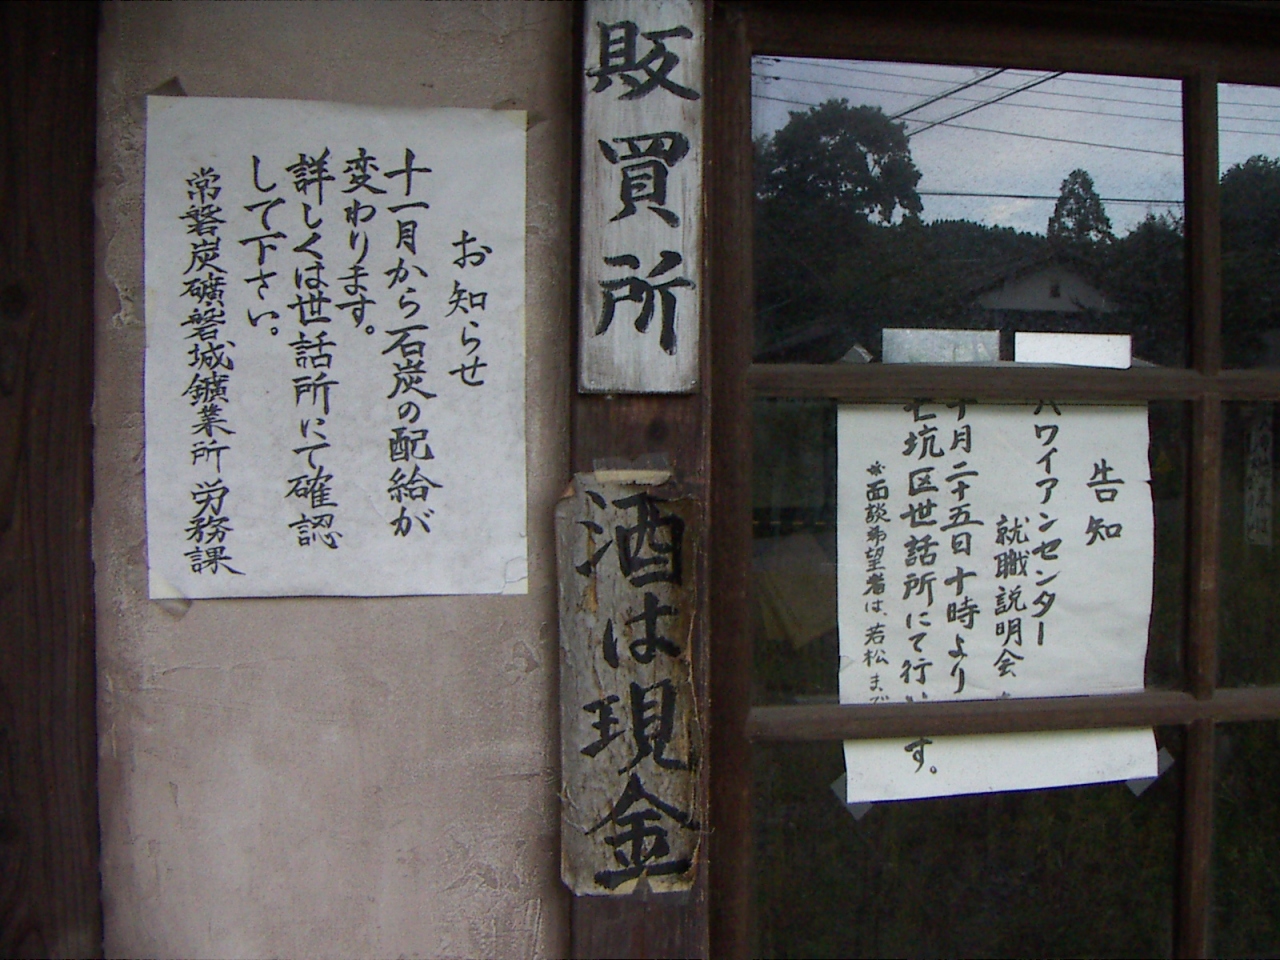 お知らせ
十一月から石炭の配給が
変わります。
詳しくは世話所にて確認
して下さい。
常磐炭礦磐城鑛業所 労務課
販買所
酒は現金
告知
ハワイアンセンター
就職説明会
十月二十五日十時より
七坑区世話所にて行います。
※面談希望者は、若松まで